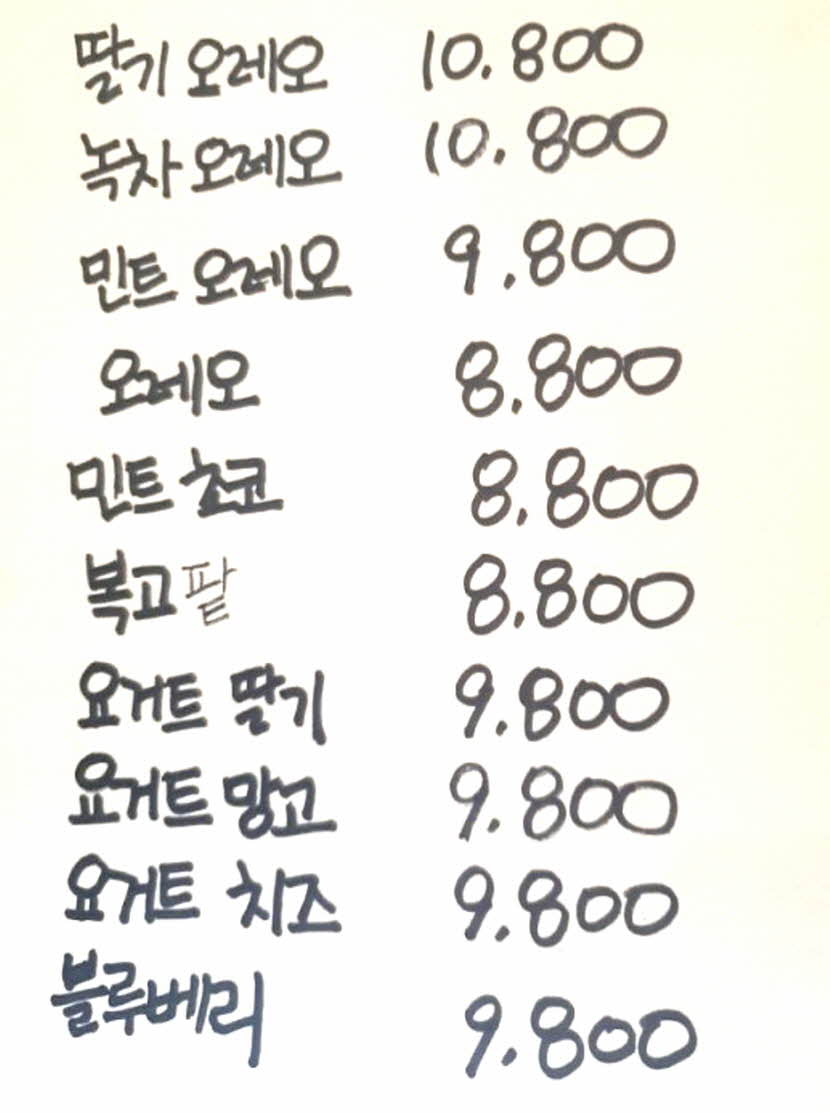 딸기 오레오 10.800
녹차 오레오 10.800
민트 오레오 9.800
오레오 8.800
민트 초코 8.800
복고 팥 8.800
요거트 딸기 9.800
요거트 망고 9.800
요거트 치즈 9.800
블루베리 9.800